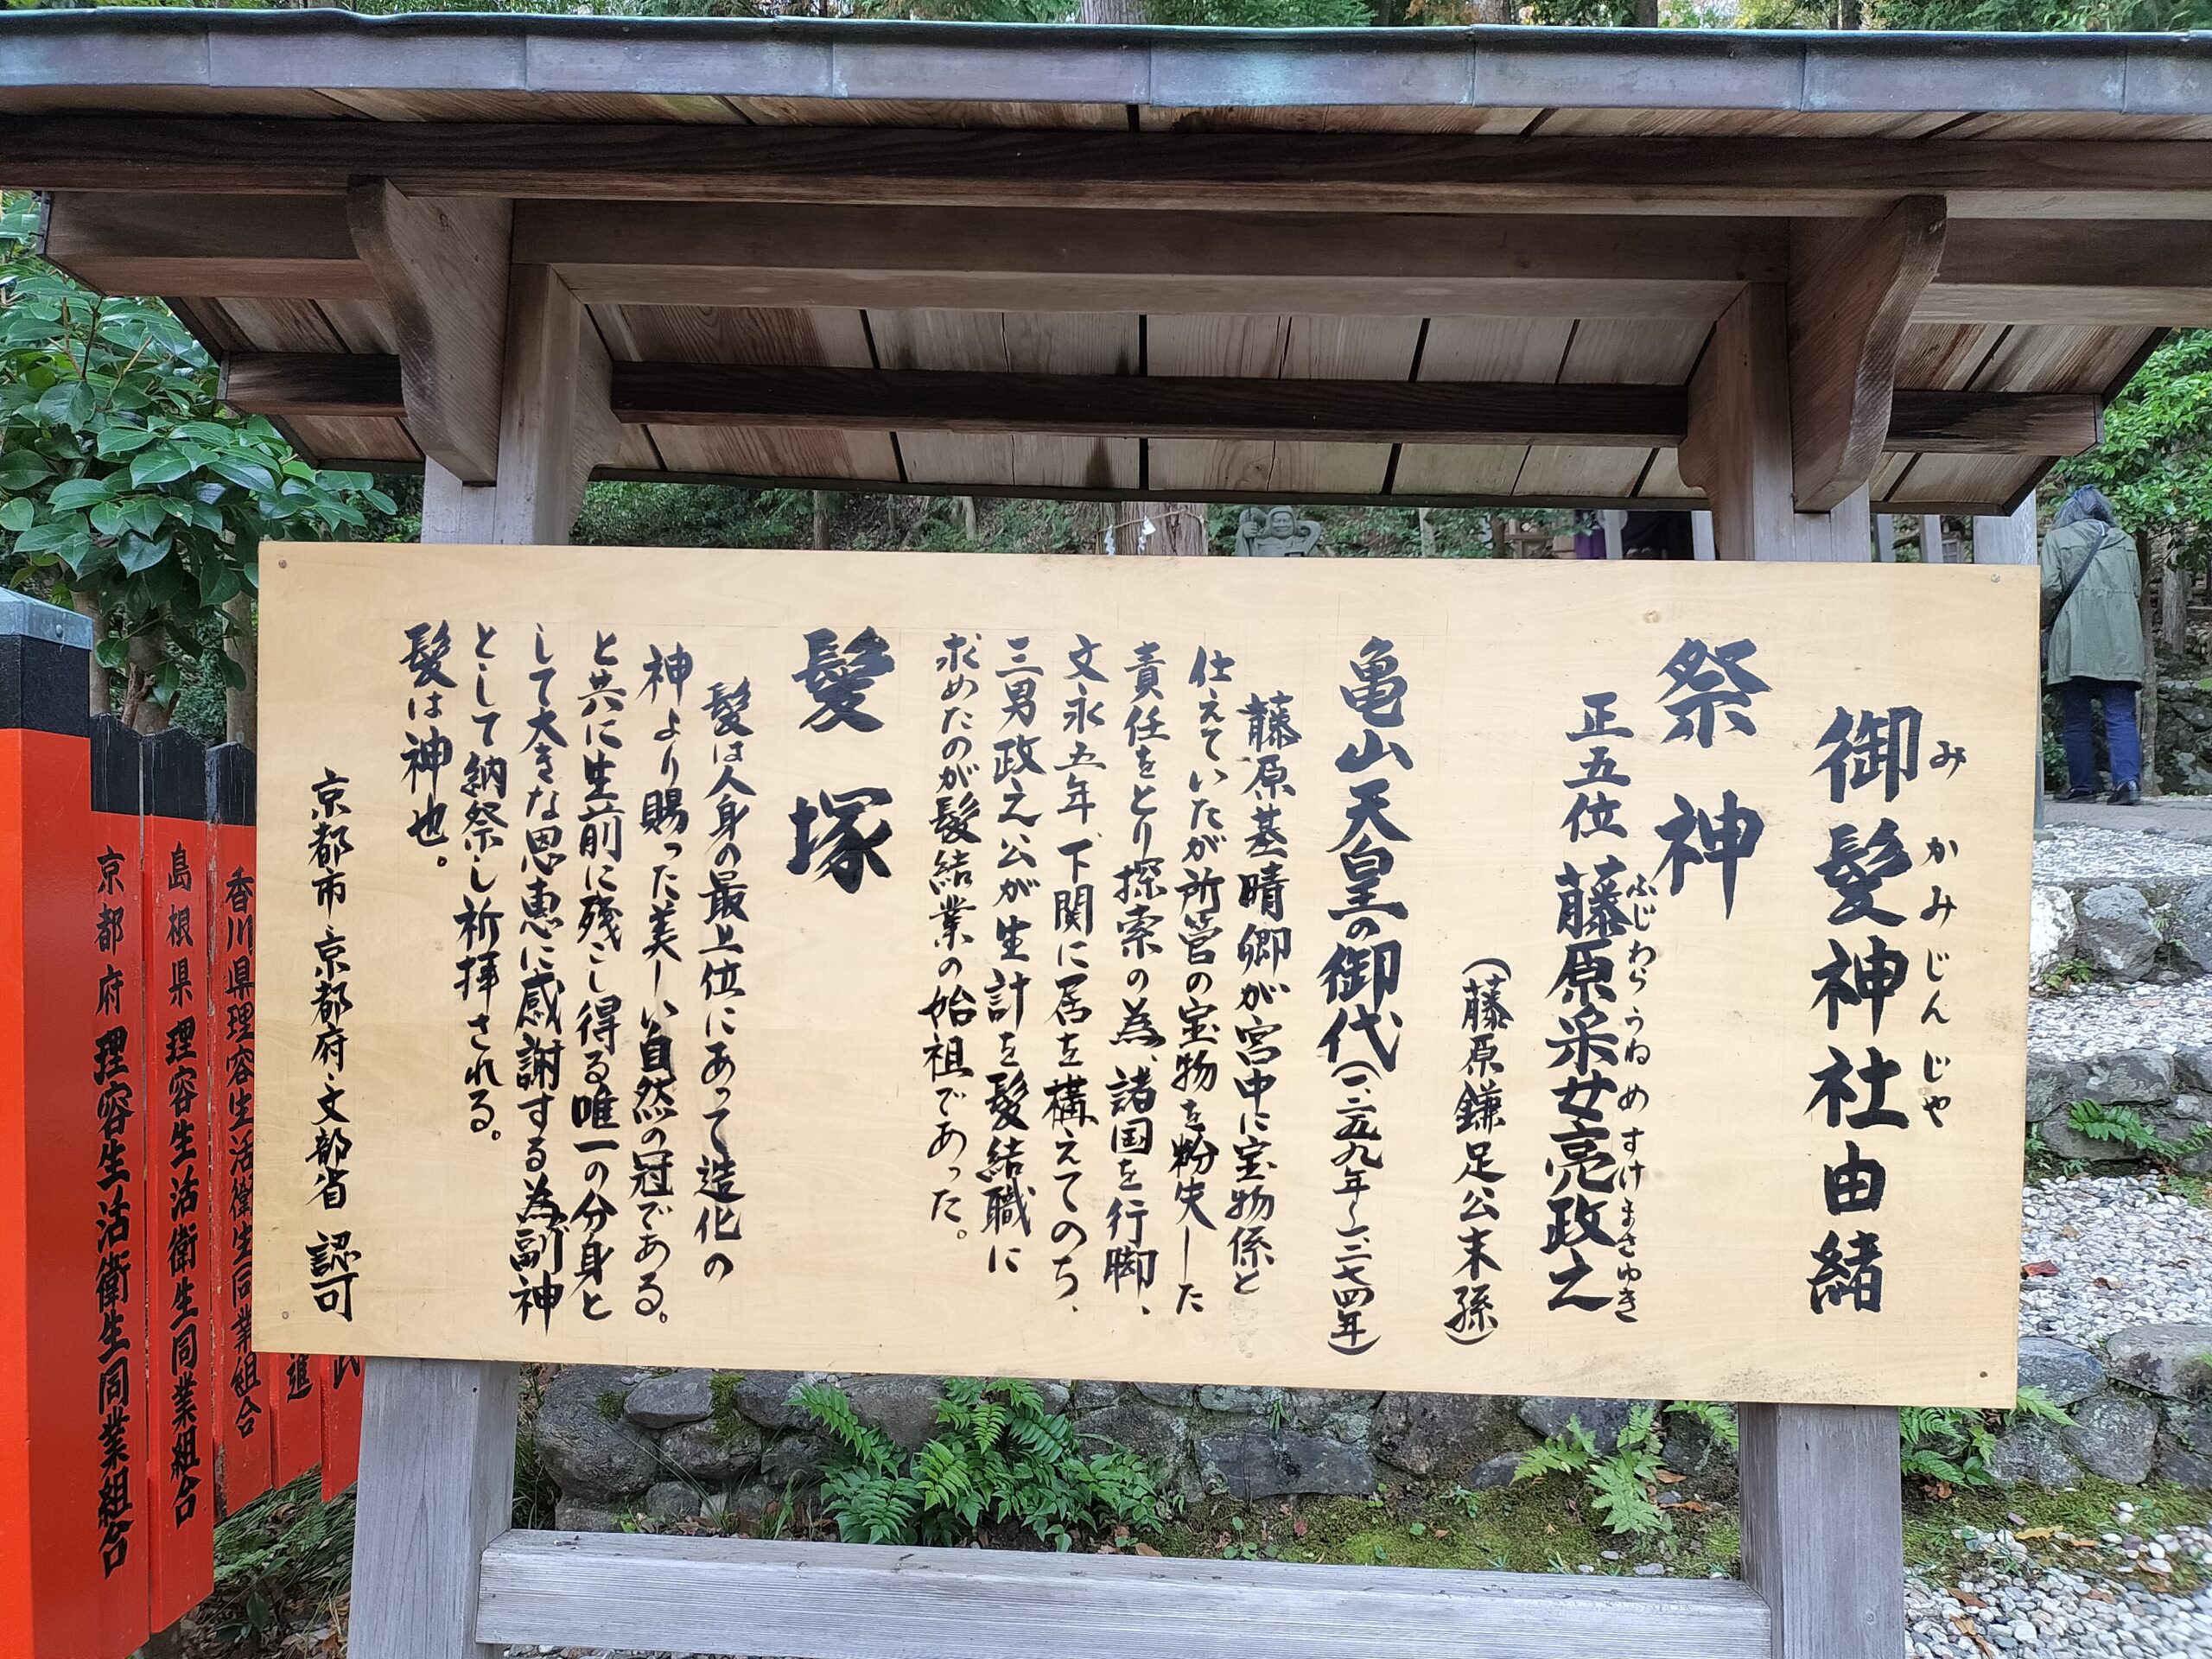 御髪神社由緒
みかみじんじゃ
祭神
正五位 藤原采女亮政之
ふじわらうねめすけまさゆき
(藤原鎌足公末孫)
亀山天皇の御代(一、二五九年〜一、二七四年)
藤原基晴卿が宮中に宝物係と
仕えていたが所管の宝物を粉失した
責任をとり探索の為、諸国を行脚、
文永五年、下関に居を構えてのち、
三男政之公が生計を髪結職に
求めたのが髪結業の始祖であった。
髪塚
髪は人身の最上位にあって造化の
神より賜った美しい自然の冠である。
と共に生前に残こし得る唯一の分身と
して大きな恩恵に感謝する為、副神
として納祭し祈拝される。
髪は神也。
京都市・京都府・文部省 認可
香川県理容生活衛生同業組合
島根県理容生活衛生同業組合
京都府理容生活衛生同業組合
進